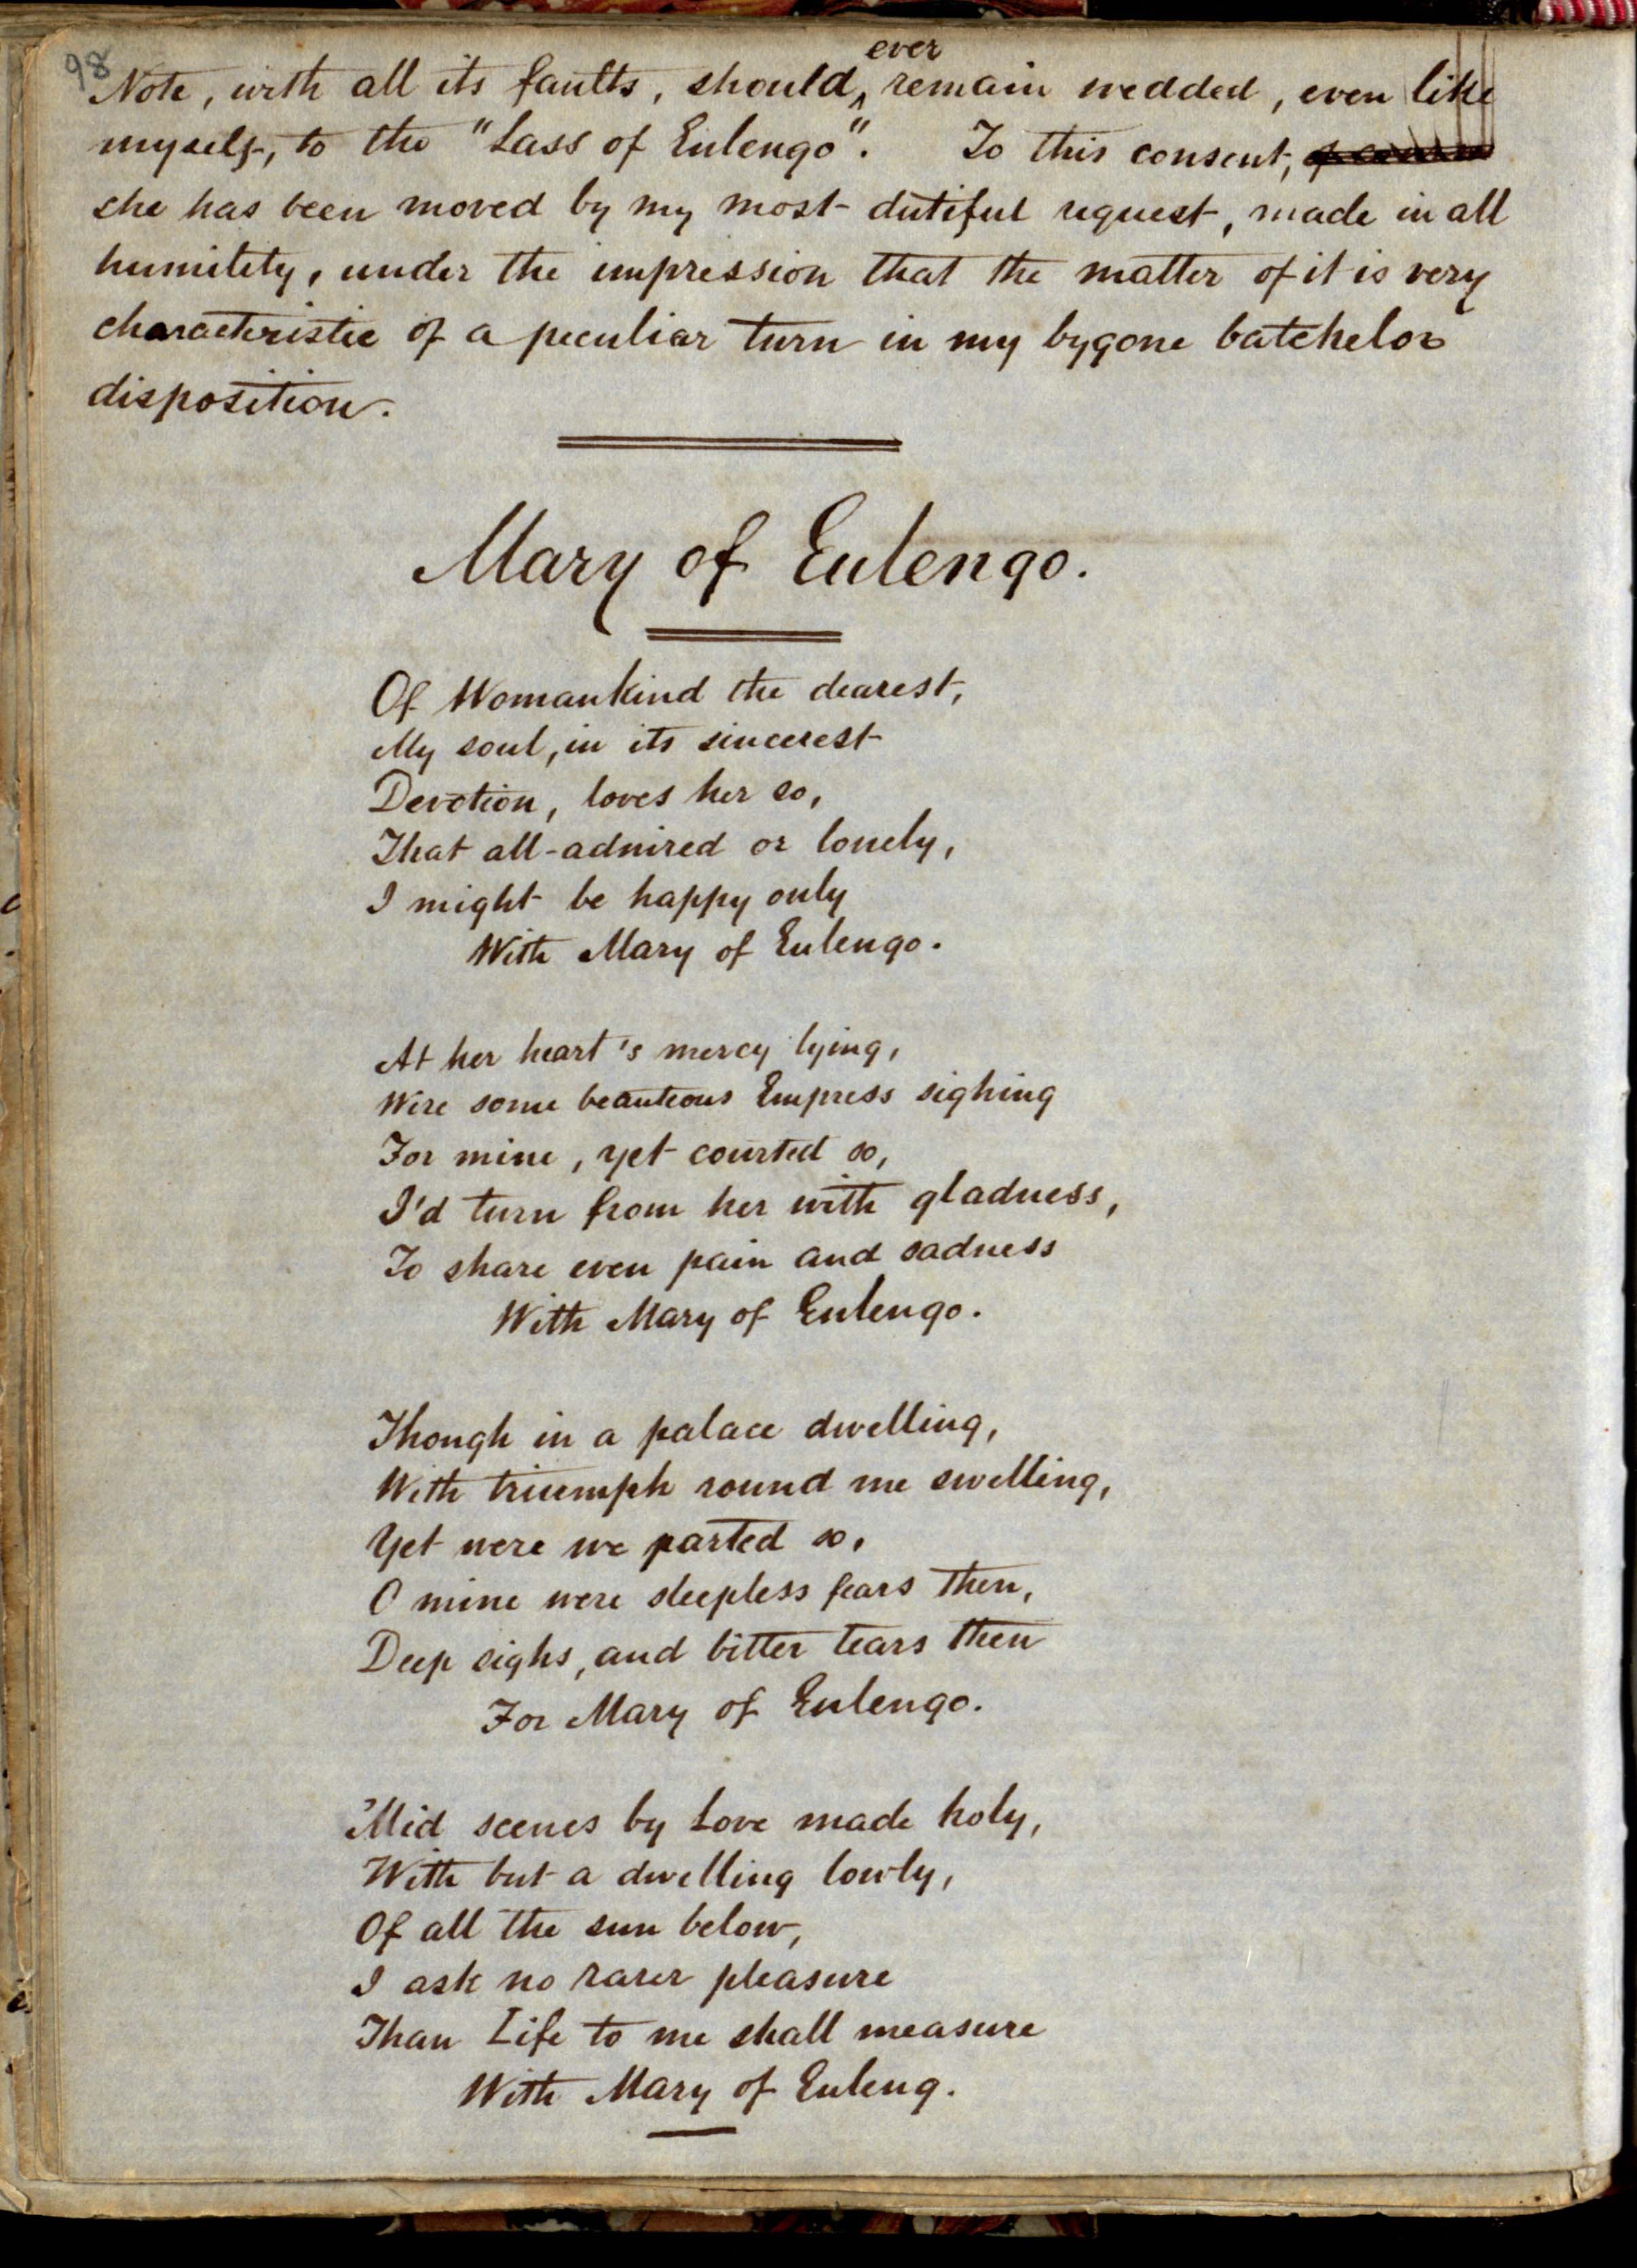 98
Note, with all its faults, should ever remain wedded, even like
myself, to the "Lass of Eulengo". To this consent,
she has been moved by my most dutiful request, made in all
humility, under the impression that the matter of it is very
characteristic of a peculiar turn in my bygone batchelor
disposition.
Mary of Eulengo.
Of Womankind the dearest,
My soul, in its sincerest
Devotion, loves her so,
That all-admired or lonely,
I might be happy only
With Mary of Eulengo.
At her heart's mercy lying,
Were some beauteous Empress sighing
For mine, yet courted so,
I'd turn from her with gladness,
To share even pain and sadness
With Mary of Eulengo.
Though in a palace dwelling,
With triumph round me swelling,
Yet were we parted so,
O mine were sleepless fears then,
Deep sighs, and bitter tears then
For Mary of Eulengo.
'Mid scenes by Love made holy,
With but a dwelling lowly,
Of all the sun below,
I ask no rarer pleasure
Than Life to me shall measure
With Mary of Euleng.